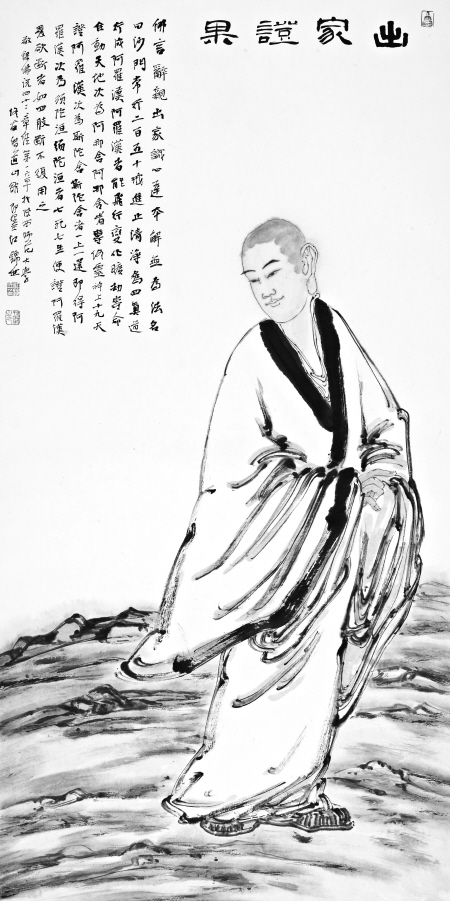 出家證果
佛言辭親出家識心達本解無為法名
曰沙門常行二百五十戒進止清淨為四真道
行成阿羅漢阿羅漢者能飛行變化曠劫壽命
住動天地次為阿那含阿那含者壽終靈神上十九天
證阿羅漢次為斯陀含斯陀含者一上一還即得阿
羅漢次為須陀洹須陀洹者七死七生便證阿羅漢
愛欲斷者如四肢斷不復用之
佛說四十二章經第一章